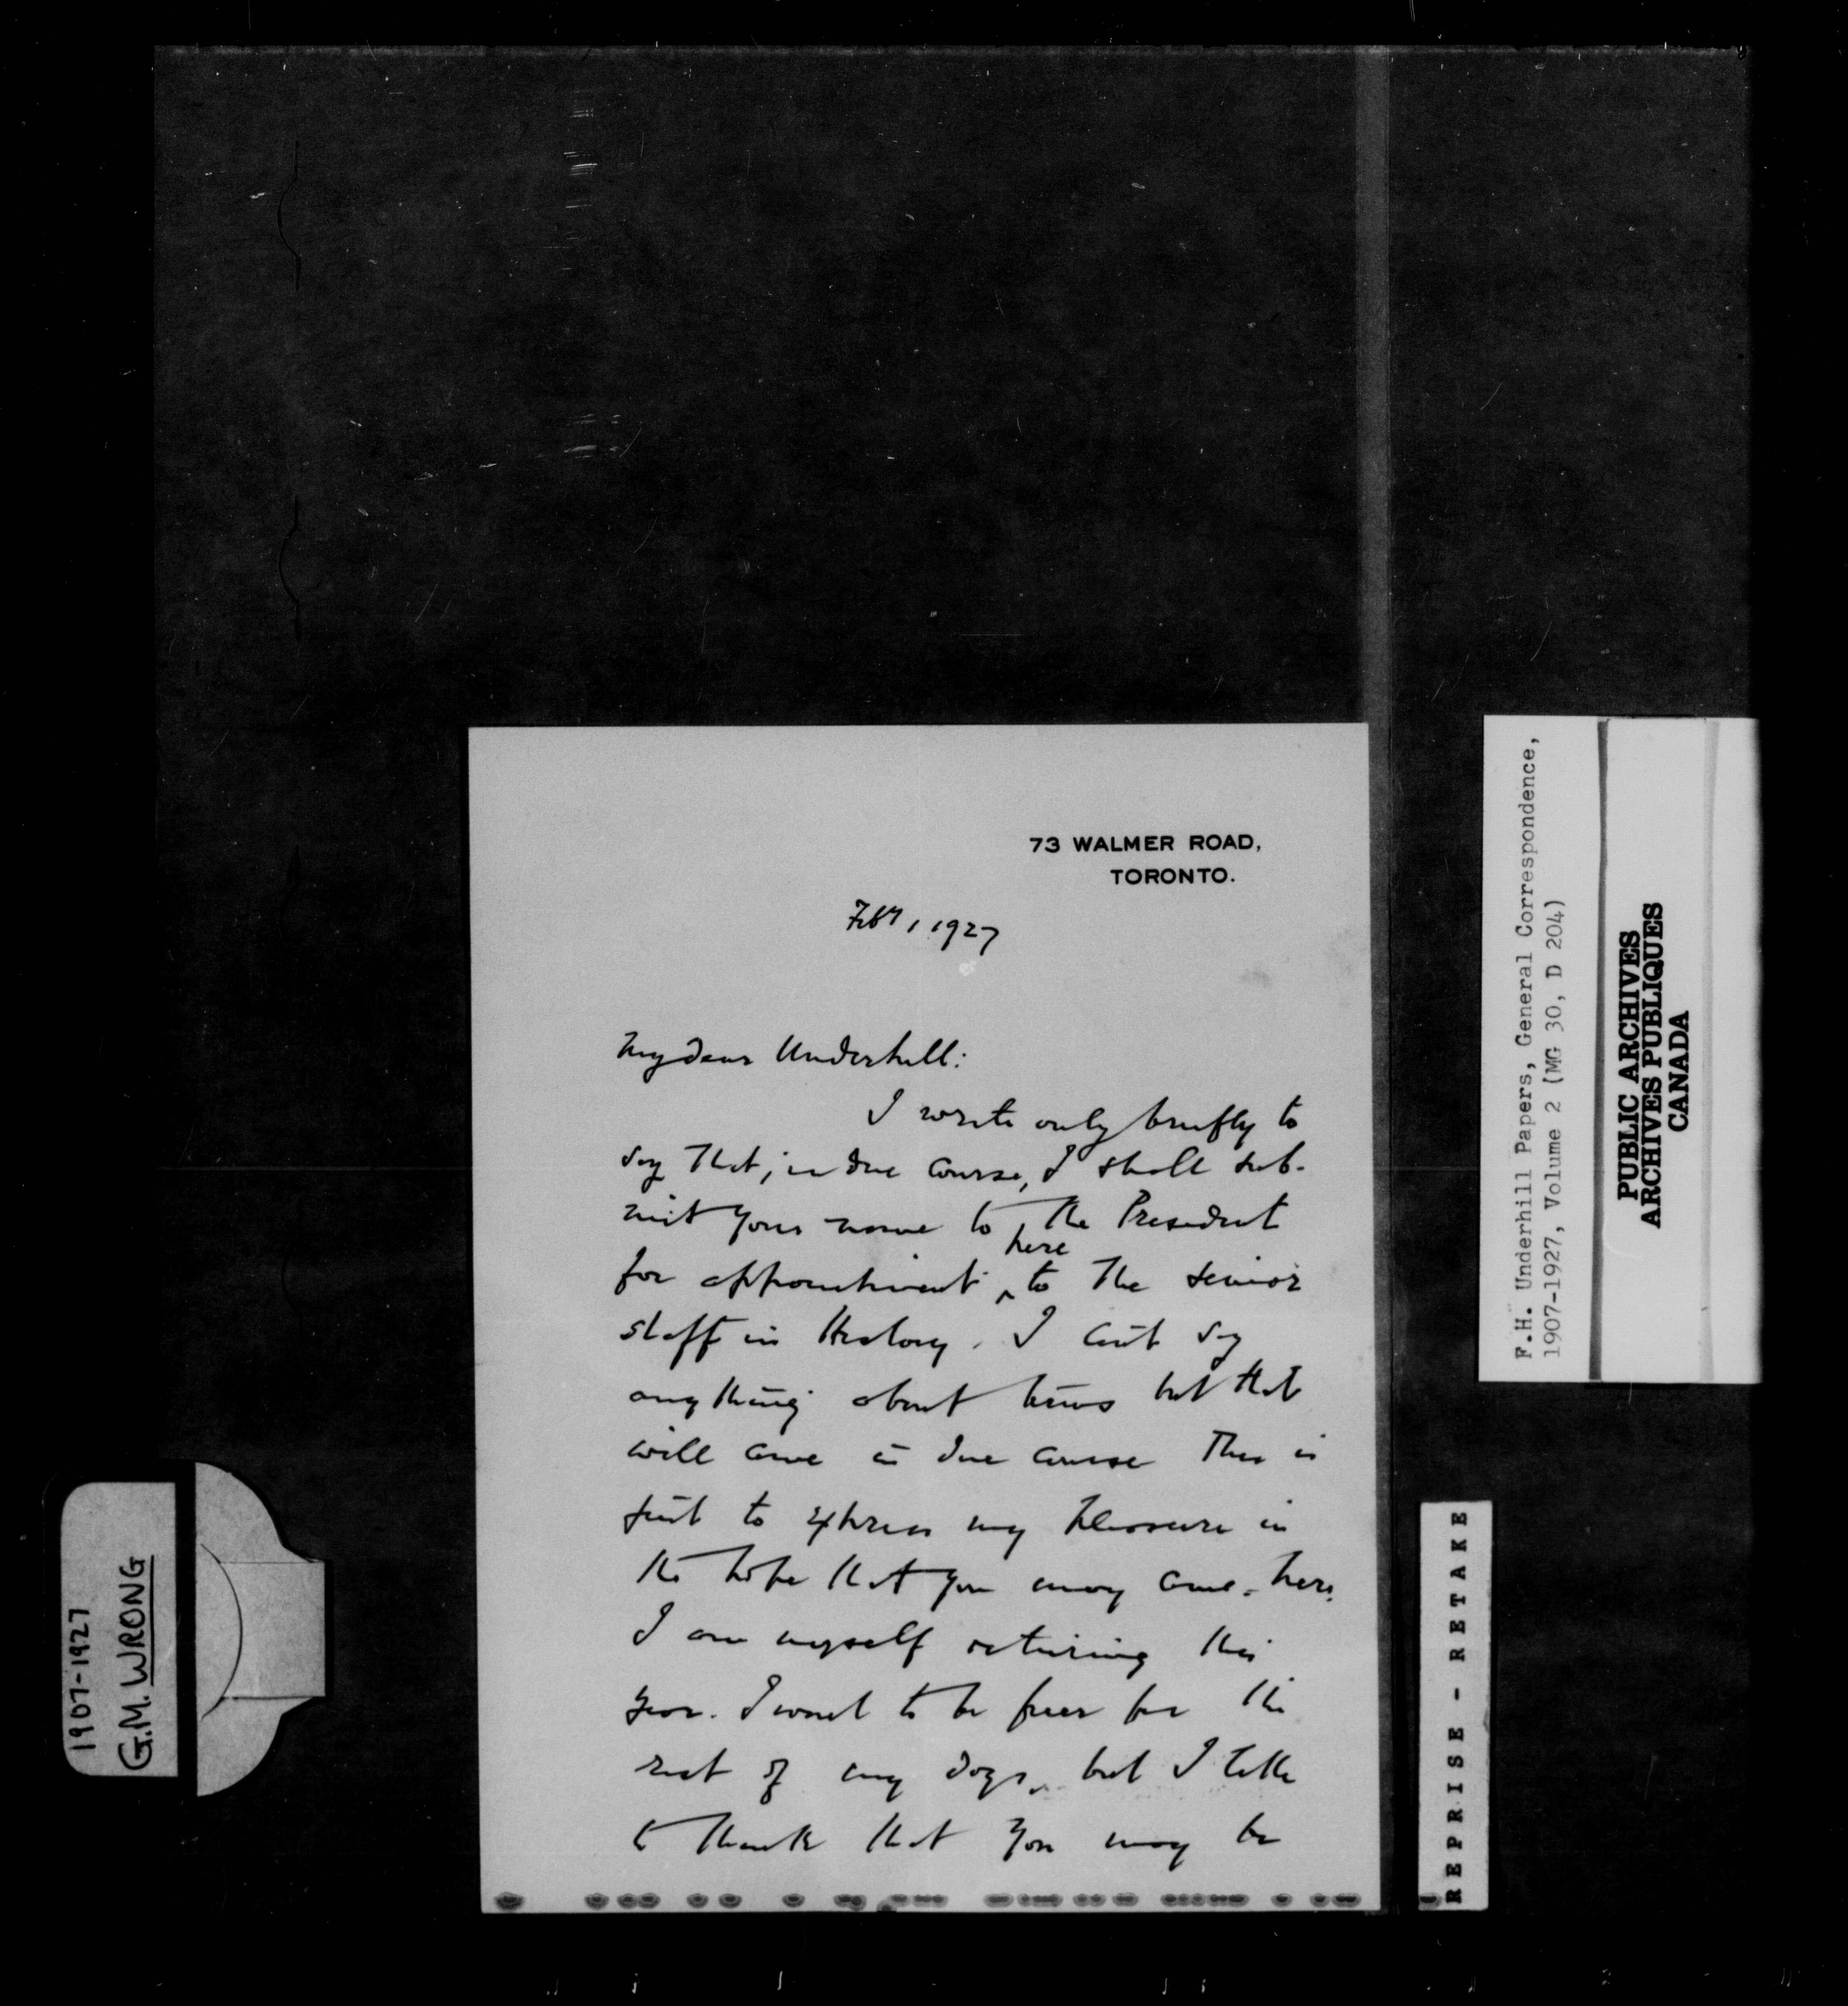 73 WALMER ROAD,
TORONTO.
Feby 1, 1927
My dear Underhill:
I write only briefly to
say that, in due course, I shall sub-
mit your name to the President
for appointment ^here to the senior
staff in History. I can't say
anything about terms but that
will come in due course This is
just to express my pleasure in
the hope that you may come here.
I am myself retiring this
year. I want to be freer for the
rest of my days, but I like
to think that you may be
F.H. Underhill Papers, General Correspondence,
1907-1927, Volume 2 (MG 30, D 204)
PUBLIC ARCHIVES
ARCHIVES PUBLIQUES
CANADA
REPRISE - RETAKE
1907-1927
G.M. WRONG